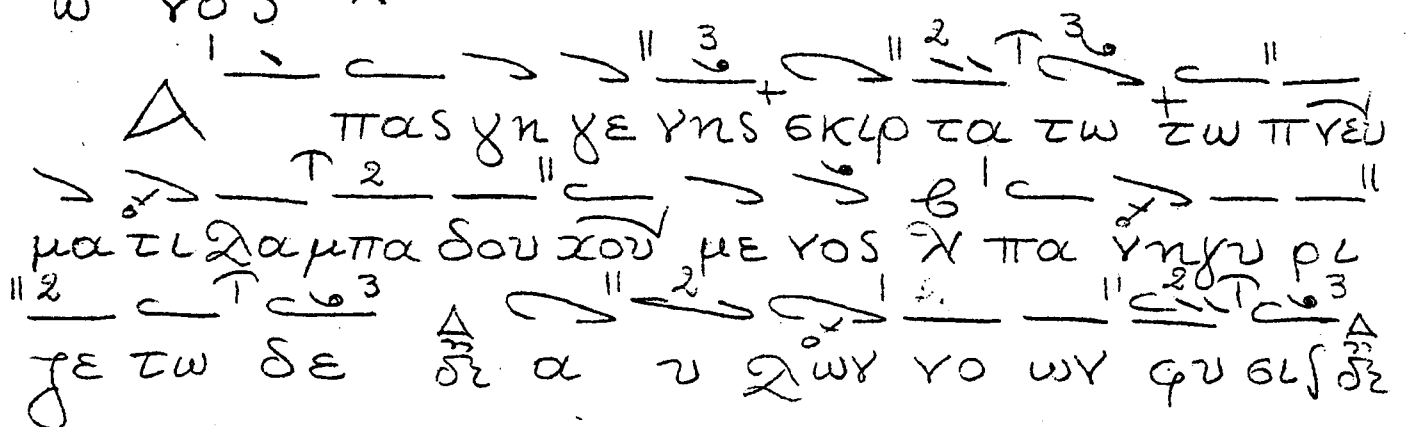 ω νος
Α πας γη γε νης σκιρ τα τω τω πνευ
μα τι λα μπα δου χου με νος πα νη γυ ρι
ζε τω δε α υ λων νο ων φυ σις